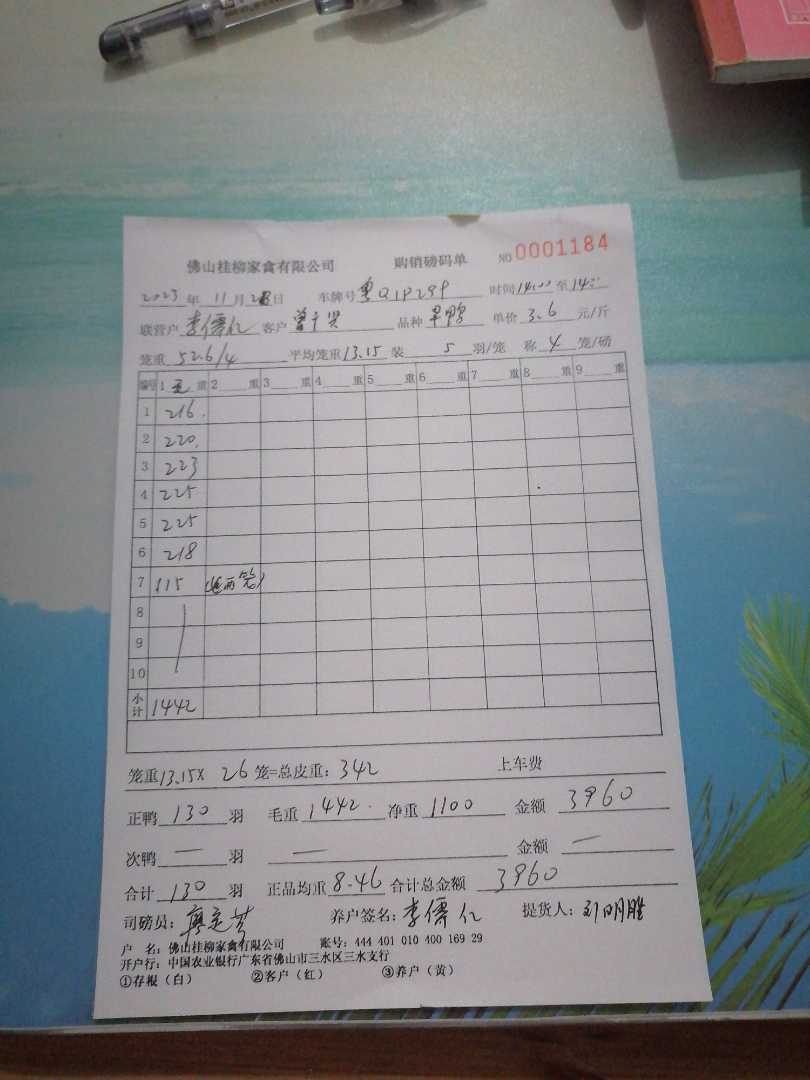 佛山桂柳家禽有限公司 购销磅码单 NO 0001184
2023年11月28日 车牌号 粤Q1P299 时间14:00至14:
联营户 李传仁 客户 曾 品种 单价 3.6 元/斤
笼重 52.6/4 平均笼重13.15 装 5 羽/笼 称 4 笼/磅
编号 1 毛 重 2 重 3 重 4 重 5 重 6 重 7 重 8 重 9 重
1 216.
2 220.
3 223
4 225
5 225
6 218
7 115 (两笼)
8
9
10
小计 1442
笼重13.15X 26 笼=总皮重: 342 上车费
正鸭 130 羽 毛重 1442. 净重 1100 金额 3960
次鸭 — 羽 — 金额 —
合计 130 羽 正品均重 8.46 合计总金额 3960
司磅员: 养户签名: 李傳仁 提货人: 刘明胜
户 名: 佛山桂柳家禽有限公司 账号: 444 401 010 400 169 29
开户行: 中国农业银行广东省佛山市三水区三水支行
①存根(白) ②客户(红) ③养户(黄)